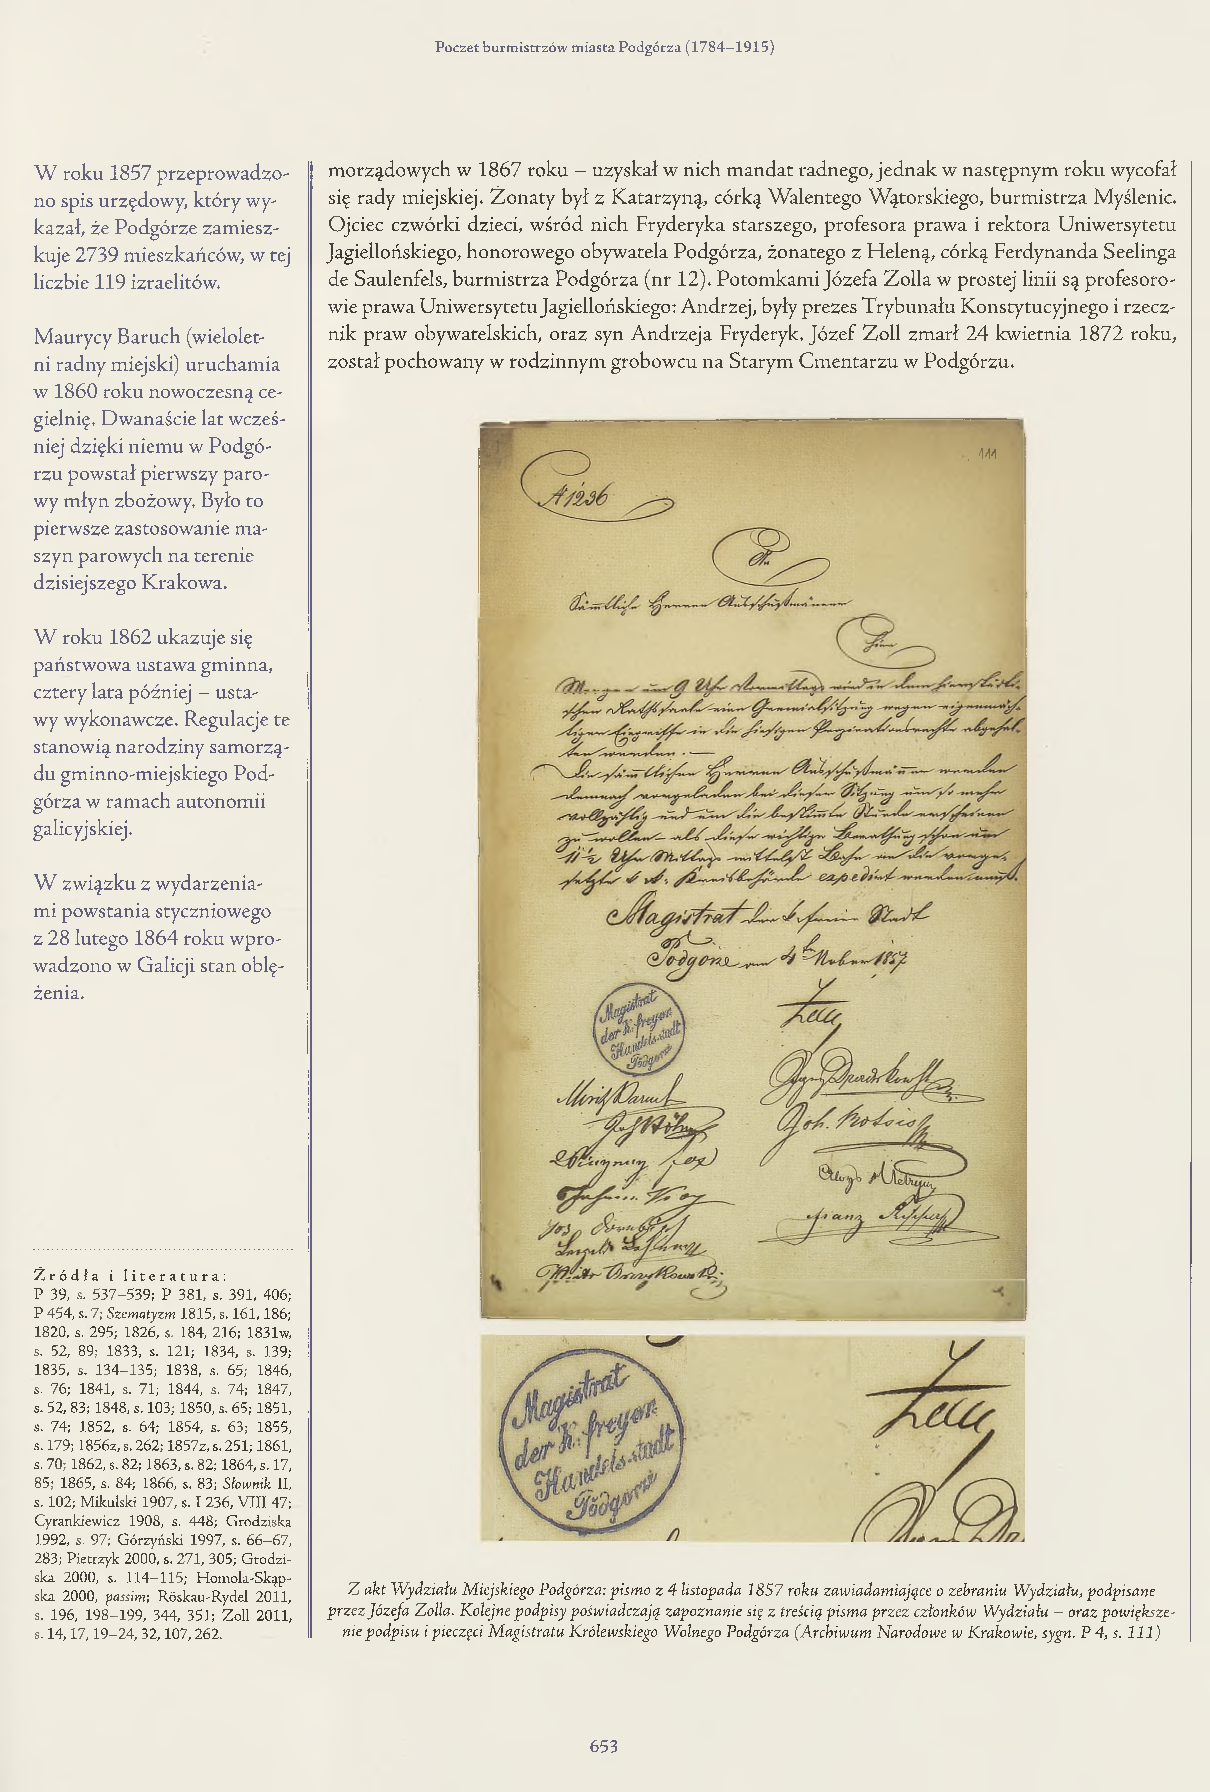 Poczet burmistrzów miasta Podgórza (1784–1915)
W roku 1857 przeprowadzo-
no spis urzędowy, który wy-
kazał, że Podgórze zamiesz-
kuje 2739 mieszkańców, w tej
liczbie 119 izraelitów.
Maurycy Baruch (wielolet-
ni radny miejski) uruchamia
w 1860 roku nowoczesną ce-
gielnię. Dwanaście lat wcześ-
niej dzięki niemu w Podgó-
rzu powstał pierwszy paro-
wy młyn zbożowy. Było to
pierwsze zastosowanie ma-
szyn parowych na terenie
dzisiejszego Krakowa.
W roku 1862 ukazuje się
państwowa ustawa gminna,
cztery lata później – usta-
wy wykonawcze. Regulacje te
stanowią narodziny samorzą-
du gminno-miejskiego Pod-
górza w ramach autonomii
galicyjskiej.
W związku z wydarzenia-
mi powstania styczniowego
z 28 lutego 1864 roku wpro-
wadzono w Galicji stan oblę-
żenia.
Źródła i literatura:
P 39, s. 537–539; P 381, s. 391, 406;
P 454, s. 7; Szematyzm 1815, s. 161, 186;
1820, s. 295; 1826, s. 184, 216; 1831w,
s. 52, 89; 1833, s. 121; 1834, s. 139;
1835, s. 134–135; 1838, s. 65; 1846,
s. 76; 1841, s. 71; 1844, s. 74; 1847,
s. 52, 83; 1848, s. 103; 1850, s. 65; 1851,
s. 74; 1852, s. 64; 1854, s. 63; 1855,
s. 179; 1856z, s. 262; 1857z, s. 251; 1861,
s. 70; 1862, s. 82; 1863, s. 82; 1864, s. 17,
85; 1865, s. 84; 1866, s. 83; Słownik II,
s. 102; Mikulski 1907, s. I 236, VIII 47;
Cyrankiewicz 1908, s. 448; Grodziska
1992, s. 97; Górzyński 1997, s. 66–67,
283; Pietrzyk 2000, s. 271, 305; Grodzi-
ska 2000, s. 114–115; Homola-Skąp-
ska 2000, passim; Röskau-Rydel 2011,
s. 196, 198–199, 344, 351; Zoll 2011,
s. 14, 17, 19–24, 32, 107, 262.
morządowych w 1867 roku – uzyskał w nich mandat radnego, jednak w następnym roku wycofał
się rady miejskiej. Żonaty był z Katarzyną, córką Walentego Wątorskiego, burmistrza Myślenic.
Ojciec czwórki dzieci, wśród nich Fryderyka starszego, profesora prawa i rektora Uniwersytetu
Jagiellońskiego, honorowego obywatela Podgórza, żonatego z Heleną, córką Ferdynanda Seelinga
de Saulenfels, burmistrza Podgórza (nr 12). Potomkami Józefa Zolla w prostej linii są profesoro-
wie prawa Uniwersytetu Jagiellońskiego: Andrzej, były prezes Trybunału Konstytucyjnego i rzecz-
nik praw obywatelskich, oraz syn Andrzeja Fryderyk. Józef Zoll zmarł 24 kwietnia 1872 roku,
został pochowany w rodzinnym grobowcu na Starym Cmentarzu w Podgórzu.
111
1236
An
Sämmtliche Herren Ausschußmänner
Hier
Morgen um 9 Uhr Vormittags wird in dem hierstädti-
schen Rathssaale eine Gremialsitzung wegen eigenmäch-
tigen Eingriffe in die hiesigen Propinationsrechte abgehal-
ten werden. —
Die sämmtlichen Herren Ausschußmänner werden
demnach vorgeladen bei dieser Sitzung um so mehr
vollzählig und um die bestimmte Stunde erscheinen
zu wollen – als diese wichtige Berathung schon um
11 ½ Uhr Mittags mittelst Bahn an die vorge-
setzte k. k. Kreisbehörde expedirt werden muß.
Magistrat der k. freien Stadt
Podgórze am 4ten Nober 1857
Magistrat
der K. freyen
Handels-stadt
Podgorze
Zoll
Moritz Baruch
Joh. Motsio
Aloys
Franz
Magistrat
der K. freyen
Handels-stadt
Podgorze
Zoll
Z akt Wydziału Miejskiego Podgórza: pismo z 4 listopada 1857 roku zawiadamiające o zebraniu Wydziału, podpisane
przez Józefa Zolla. Kolejne podpisy poświadczają zapoznanie się z treścią pisma przez członków Wydziału – oraz powiększe-
nie podpisu i pieczęci Magistratu Królewskiego Wolnego Podgórza (Archiwum Narodowe w Krakowie, sygn. P 4, s. 111)
653